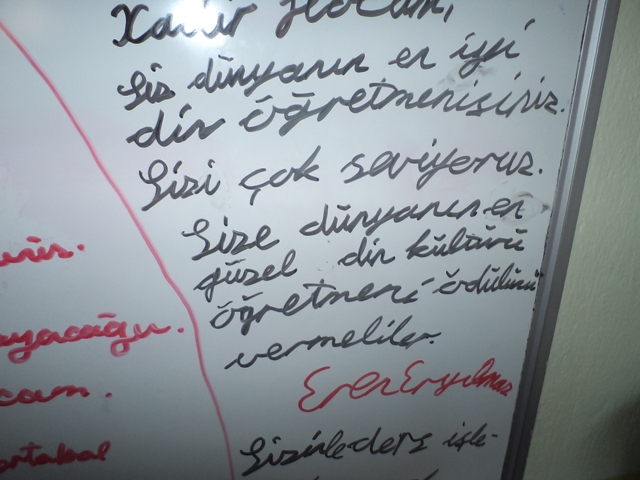 Hocam,
Siz dünyanın en iyi
din öğretmenisiniz.
Sizi çok seviyoruz.
Size dünyanın en
güzel din kültürü
öğretmeni ödülünü
vermeliler.
Eren Eryılmaz
Sizinle ders işle-